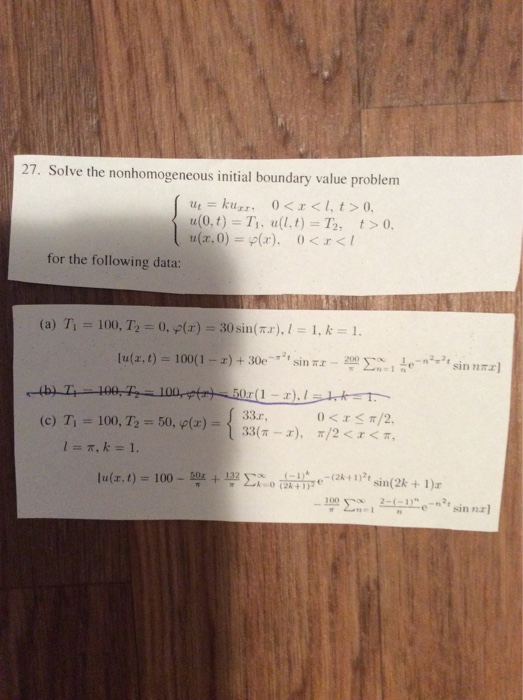 27. Solve the nonhomogeneous initial boundary value problem
{ uₜ = kuₓₓ, 0 < x < l, t > 0,
u(0, t) = T₁, u(l, t) = T₂, t > 0,
u(x, 0) = φ(x), 0 < x < l
for the following data:
(a) T₁ = 100, T₂ = 0, φ(x) = 30 sin(πx), l = 1, k = 1.
[u(x, t) = 100(1 − x) + 30e^{−π²t} sin πx − 200/π ∑_{n=1}^{∞} 1/n e^{−n²π²t} sin nπx]
(b) T₁ = 100, T₂ = 100, φ(x) = 50x(1 − x), l = 1, k = 1.
(c) T₁ = 100, T₂ = 50, φ(x) = { 33x, 0 < x ≤ π/2,
33(π − x), π/2 < x < π,
l = π, k = 1.
[u(x, t) = 100 − 50x/π + 132/π ∑_{k=0}^{∞} (−1)^k/(2k+1)² e^{−(2k+1)²t} sin(2k + 1)x
− 100/π ∑_{n=1}^{∞} 2−(−1)ⁿ/n e^{−n²t} sin nx]